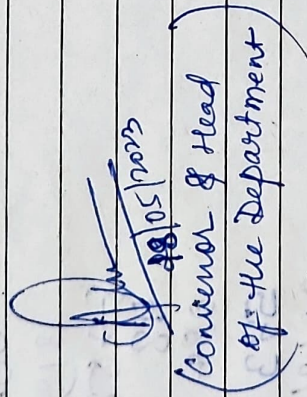 28/05/2023
(Convenor & Head
of the Department)